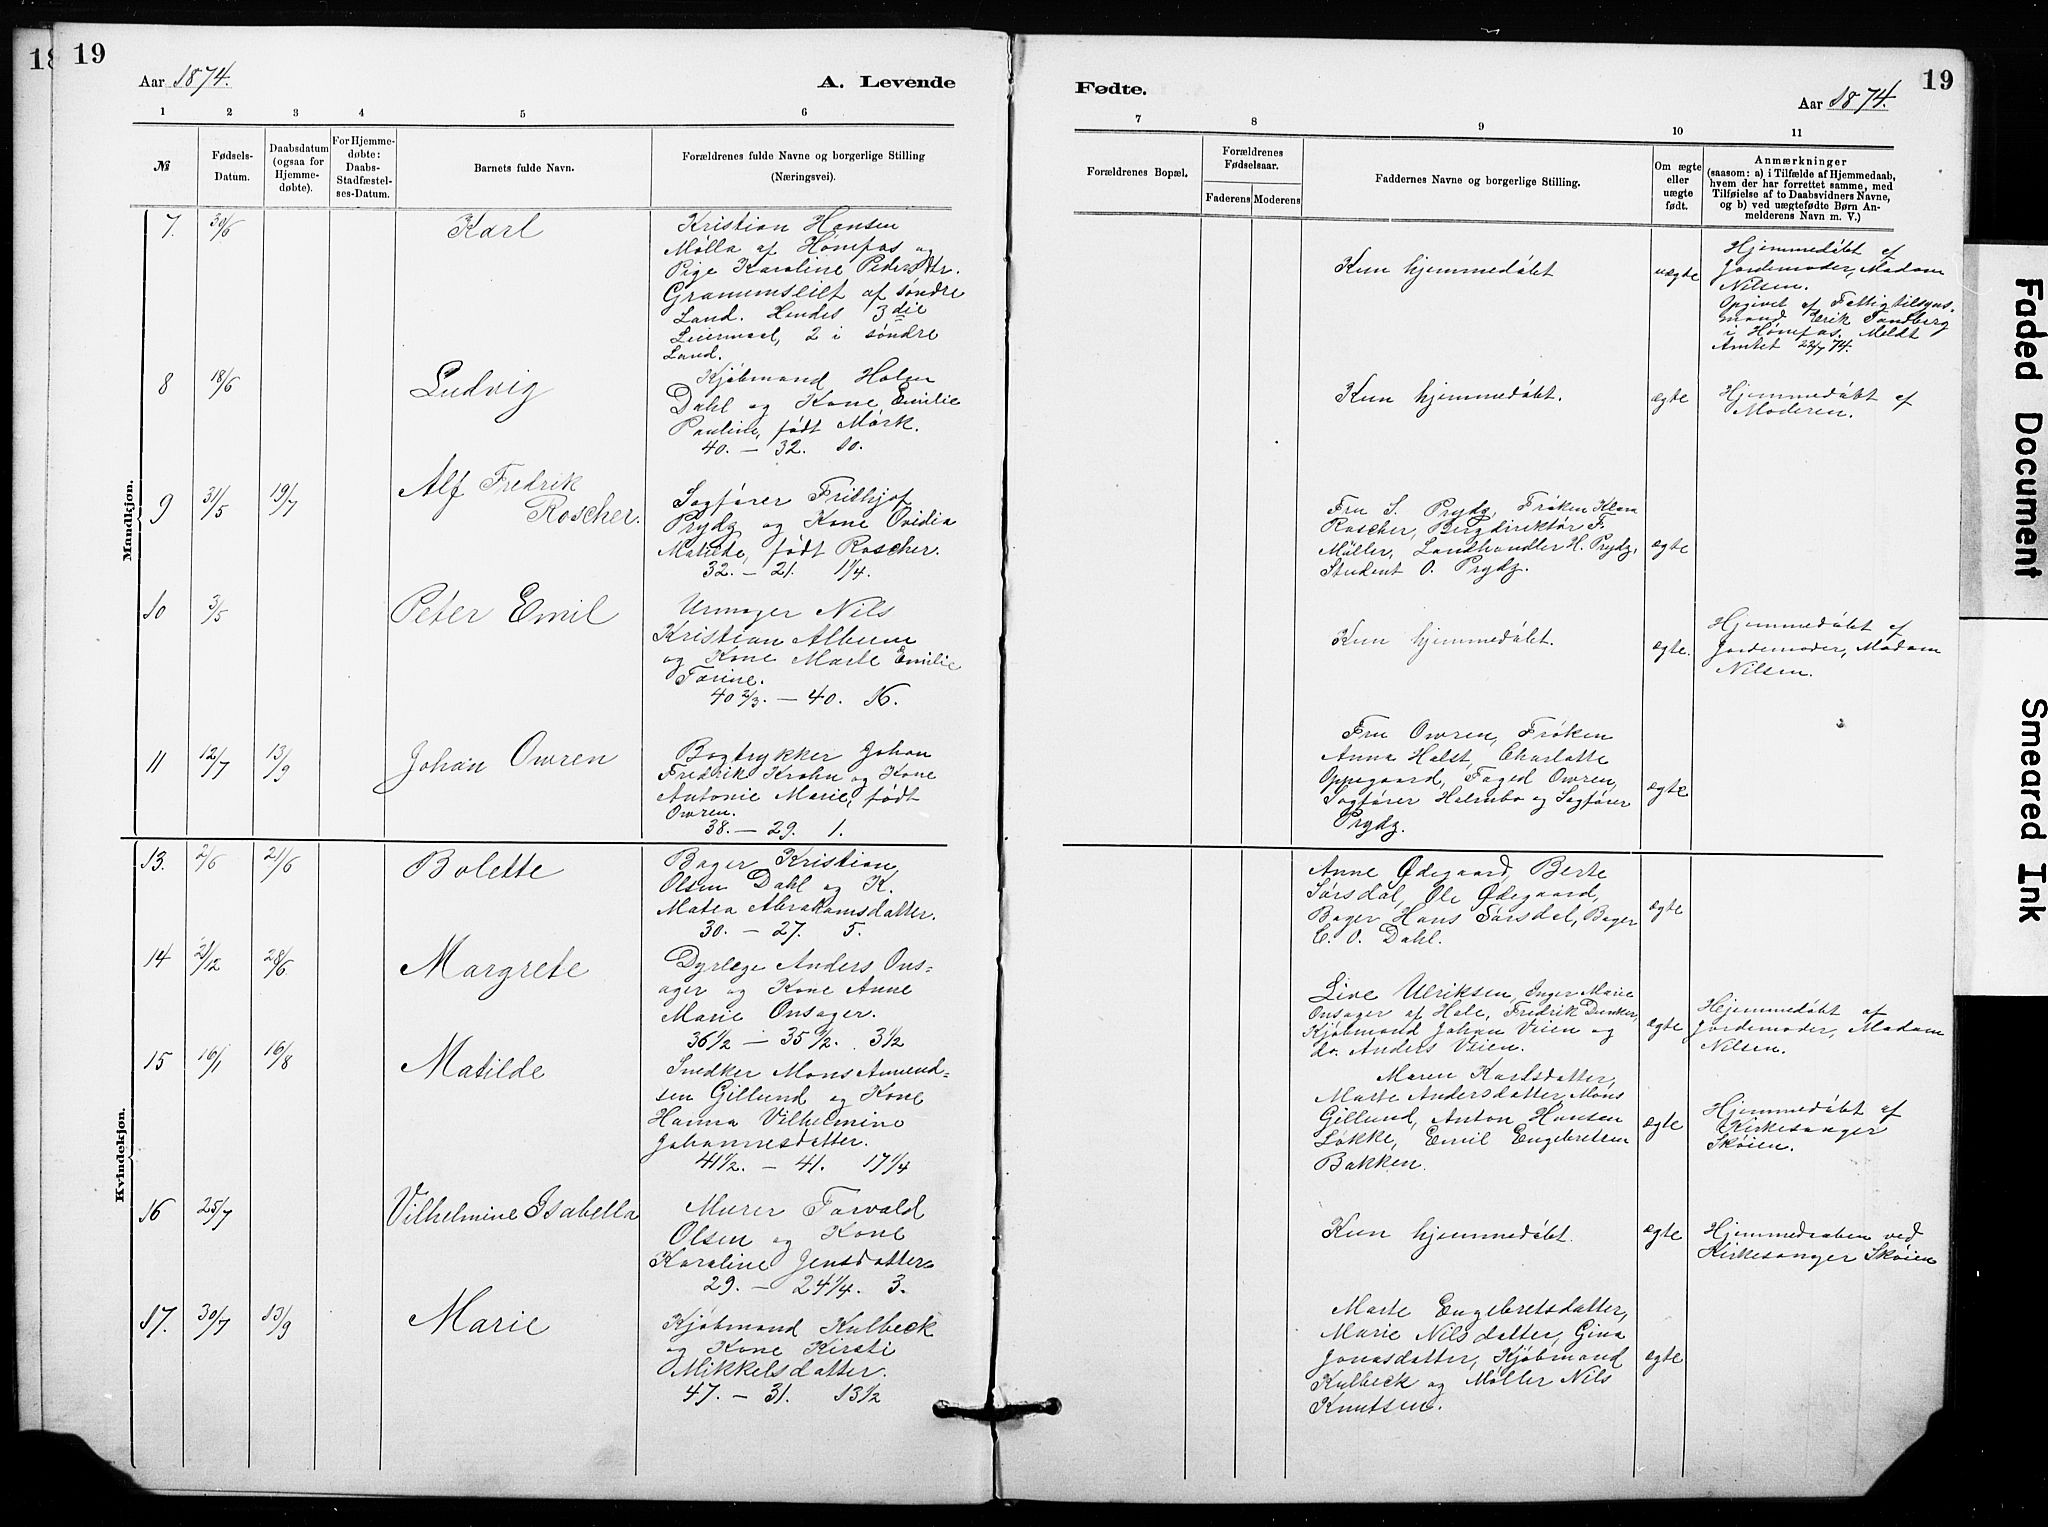 18
19
Aar 1874.
A. Levende
1 2 3 4 5 6
№
Fødsels-
Datum.
Daabsdatum
(ogsaa for
Hjemme-
døbte).
For Hjemme-
døbte:
Daabs-
Stadfæstel-
ses-Datum.
Barnets fulde Navn.
Forældrenes fulde Navne og borgerlige Stilling
(Næringsvei).
Mandkjøn.
7. 30/6 Karl
Kristian Hansen
Mølla af Hønefos og
Pige Karoline Pedersdtr.
Granumseilt af søndre
Land. Hendes 3die
Leiermaal, 2 i søndre
Land.
8 18/6 Ludvig
Kjøbmand Holm
Dahl og Kone Emilie
Pauline, født Mørk.
40. – 32. 10.
9 31/5 19/7 Alf Fredrik
Roscher.
Sagfører Frithjof
Prydz og Kone Ovidia
Matilde, født Roscher.
32. – 21. 1 1/4.
10 3/5 Peter Emil
Urmager Nils
Kristian Album
og Kone Marte Emilie
Torine.
40 2/3. – 40. 16.
11 12/7 13/9 Johan Owren
Bogtrykker Johan
Fredrik Krohn og Kone
Antonie Marie, født
Owren.
38. – 29. 1.
Kvindekjøn.
13. 2/6 21/6 Bolette
Bager Kristian
Olsen Dahl og K.
Matea Abrahamsdatter.
30. – 27. 5.
14 21/12 28/6 Margrete
Dyrlæge Anders Ons-
ager og Kone Anne
Marie Onsager.
36 1/2 – 35 1/2. 3 1/2
15 16/1 16/8 Matilde
Snedker Mons Amund-
sen Gillund og Kone
Hanna Vilhelmine
Johannesdatter.
41 1/2. – 41. 17 1/4
16 25/7 Vilhelmine Isabella
Murer Torvald
Olsen og Kone
Karoline Jensdatter
29. – 24 1/4. 3.
17. 30/7 13/9 Marie
Kjøbmand Kulbeck
og Kone Kirsti
Mikkelsdatter.
47. – 31. 13 1/2
Fødte.
19
Aar 1874.
7 8 9 10 11
Forældrenes Bopæl.
Forældrenes
Fødselsaar.
Faderens Moderens
Faddernes Navne og borgerlige Stilling.
Om ægte
eller
uægte
født.
Anmærkninger
(saasom: a) i Tilfælde af Hjemmedaab,
hvem der har forrettet samme, med
Tilføielse af to Daabsvidners Navne,
og b) ved uægtefødte Børn An-
melderens Navn m. V.)
Kun hjemmedøbt
uægte
Hjemmedøbt af
Jordemoder, Madam
Nilsen.
Opgivet af Fattigtilsyns-
mand Erik Tandberg
i Hønefos. Meldt
Amtet 22/7 74.
Kun hjemmedøbt.
ægte
Hjemmedøbt af
Moderen.
Fru S. Prydz, Frøken Klara
Roscher, Bergdirektør F.
Møller, Landhandler H. Prydz,
Student O. Prydz.
ægte
Kun hjemmedøbt.
ægte.
Hjemmedøbt af
Jordemoder, Madam
Nilsen.
Fru Owren, Frøken
Anna Holst, Charlotte
Oppegaard, Foged Owren,
Sagfører Helmbo og Sagfører
Prydz.
ægte
Anne Ødegaard, Berte
Sørsdal, Ole Ødegaard,
Bager Hans Sørsdal, Bager
C. O. Dahl.
ægte
Live Ulriksen, Inger Marie
Onsager af Hole, Fredrik Dunker,
Kjøbmand Johan Veien og
do. Anders Veien.
ægte
Hjemmedøbt af
Jordemoder, Madam
Nilsen.
Maren Karlsdatter,
Marte Andersdatter, Mons
Gillund, Anton Hansen
Løkke, Emil Engebretsen
Bakken.
ægte
Hjemmedøbt af
Kirkesanger
Skøien.
Kun hjemmedøbt.
ægte
Hjemmedaaben ved
Kirkesanger Skøien
Marte Engebretsdatter,
Marie Nilsdatter, Gina
Jonasdatter, Kjøbmand
Kulbeck og Møller Nils
Knutsen.
ægte
Faded Document
Smeared Ink